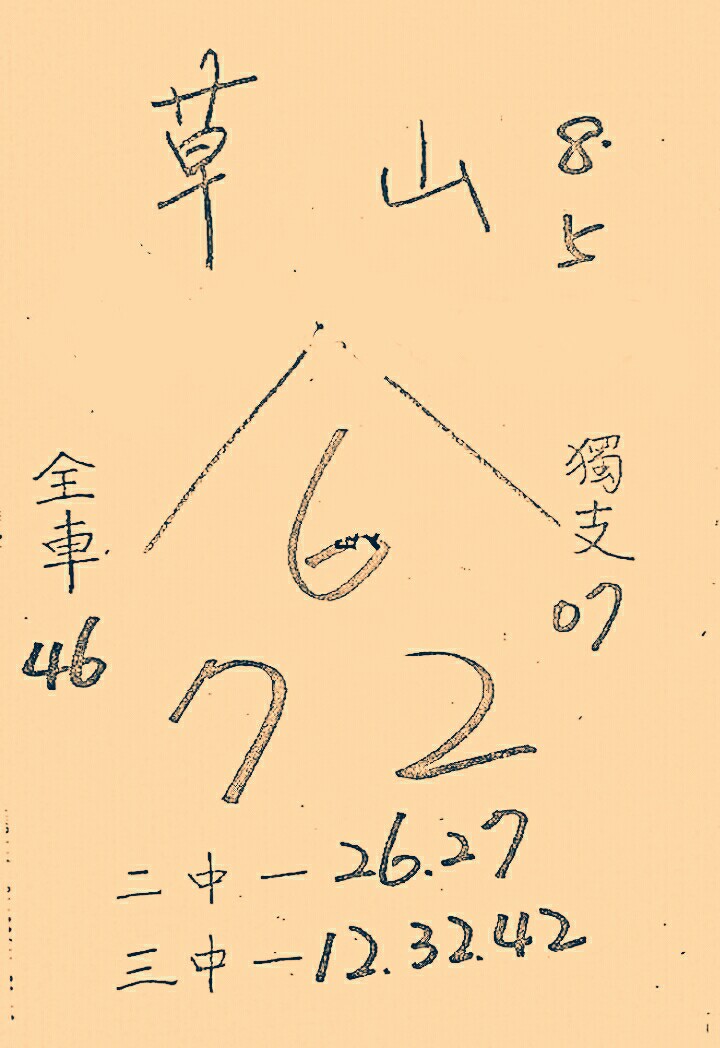 草山 8.5
全車 46
獨支 07
6
7 2
二中一 26.27
三中一 12.32.42